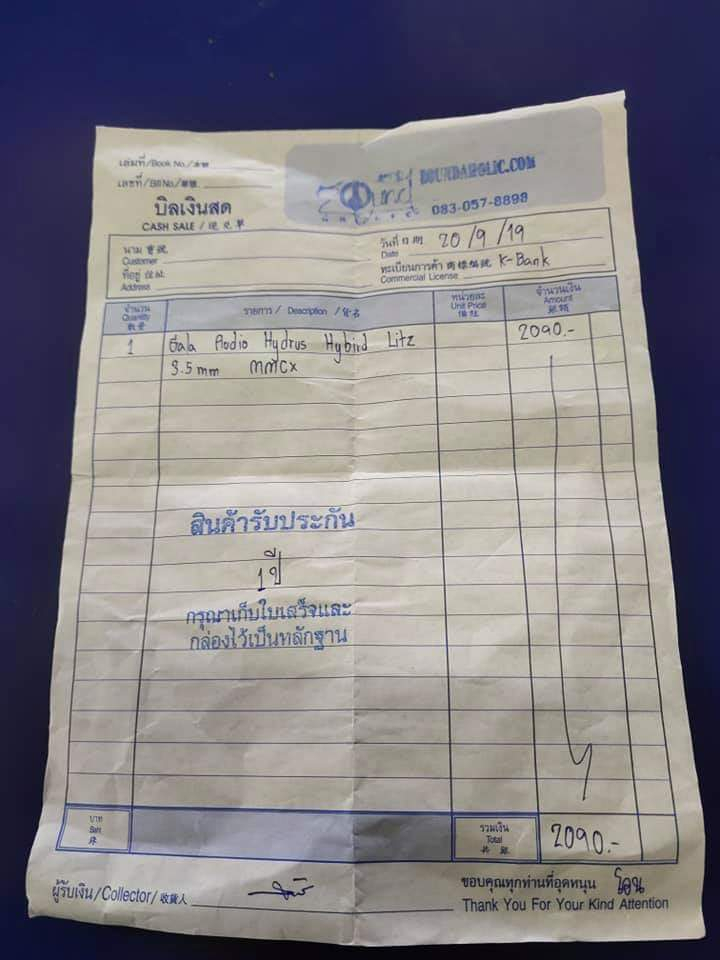 เล่มที่/Book No./本號
เลขที่/Bill No./單號
บิลเงินสด
CASH SALE / 現兌單
SOUNDAHOLIC.COM
083-057-8898
วันที่ 日期 Date 20/9/19
นาม 寶號 Customer
ทะเบียนการค้า 商標編號 Commercial License K-Bank
ที่อยู่ 住址 Address
จำนวน Quantity 數量
รายการ / Description / 貨名
หน่วยละ Unit Price 價位
จำนวนเงิน Amount 銀額
1 Gala Audio Hydrus Hybird Litz 2090.-
3.5mm MMCX
สินค้ารับประกัน
1 ปี
กรุณาเก็บใบเสร็จและ
กล่องไว้เป็นหลักฐาน
บาท Baht 銖
รวมเงิน Total 共銀 2090.-
ผู้รับเงิน/Collector/收貨人
ขอบคุณทุกท่านที่อุดหนุน โอน
Thank You For Your Kind Attention